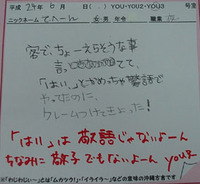 平成 29年 6月 日( ) YOU・YOU2・YOU3 号室
ニックネーム てへへん 女・男 年令 職業
客で、ちょーえらそうな事
言って
「はい」とかめっちゃ敬語で
やってんのに、
クレームつけてきよった!
「はい」は敬語じゃないよーん
ちなみに敬子でもないよーん you
※「わじわじ〜」とは「ムカツク!」・「イライラ〜」などの意味の沖縄方言です